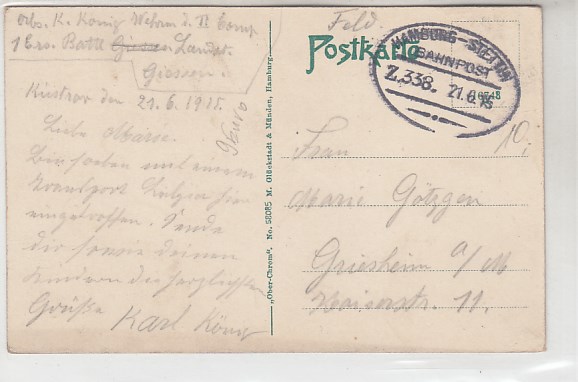 Abs. K. König Wehrm. d. II Comp.
1 Ers. Batll Giessen Landst.
Giessen.
Feld
Postkarte
HAMBURG-STETTIN
BAHNPOST
Z.338. 21.6.15
Küstrow den 21.6.1915.
9 Euro
10,-
Liebe Marie.
Bin soeben mit einem
Transport hier
eingetroffen. Sende
dir sowie deinen
Kindern die herzlichsten
Grüße
Karl König
„Ober-Chrom", No. 58085 M. Glückstadt & Münden, Hamburg.
Frau
Marie Götzgen
Griesheim a/M
Kaiserstr. 11.